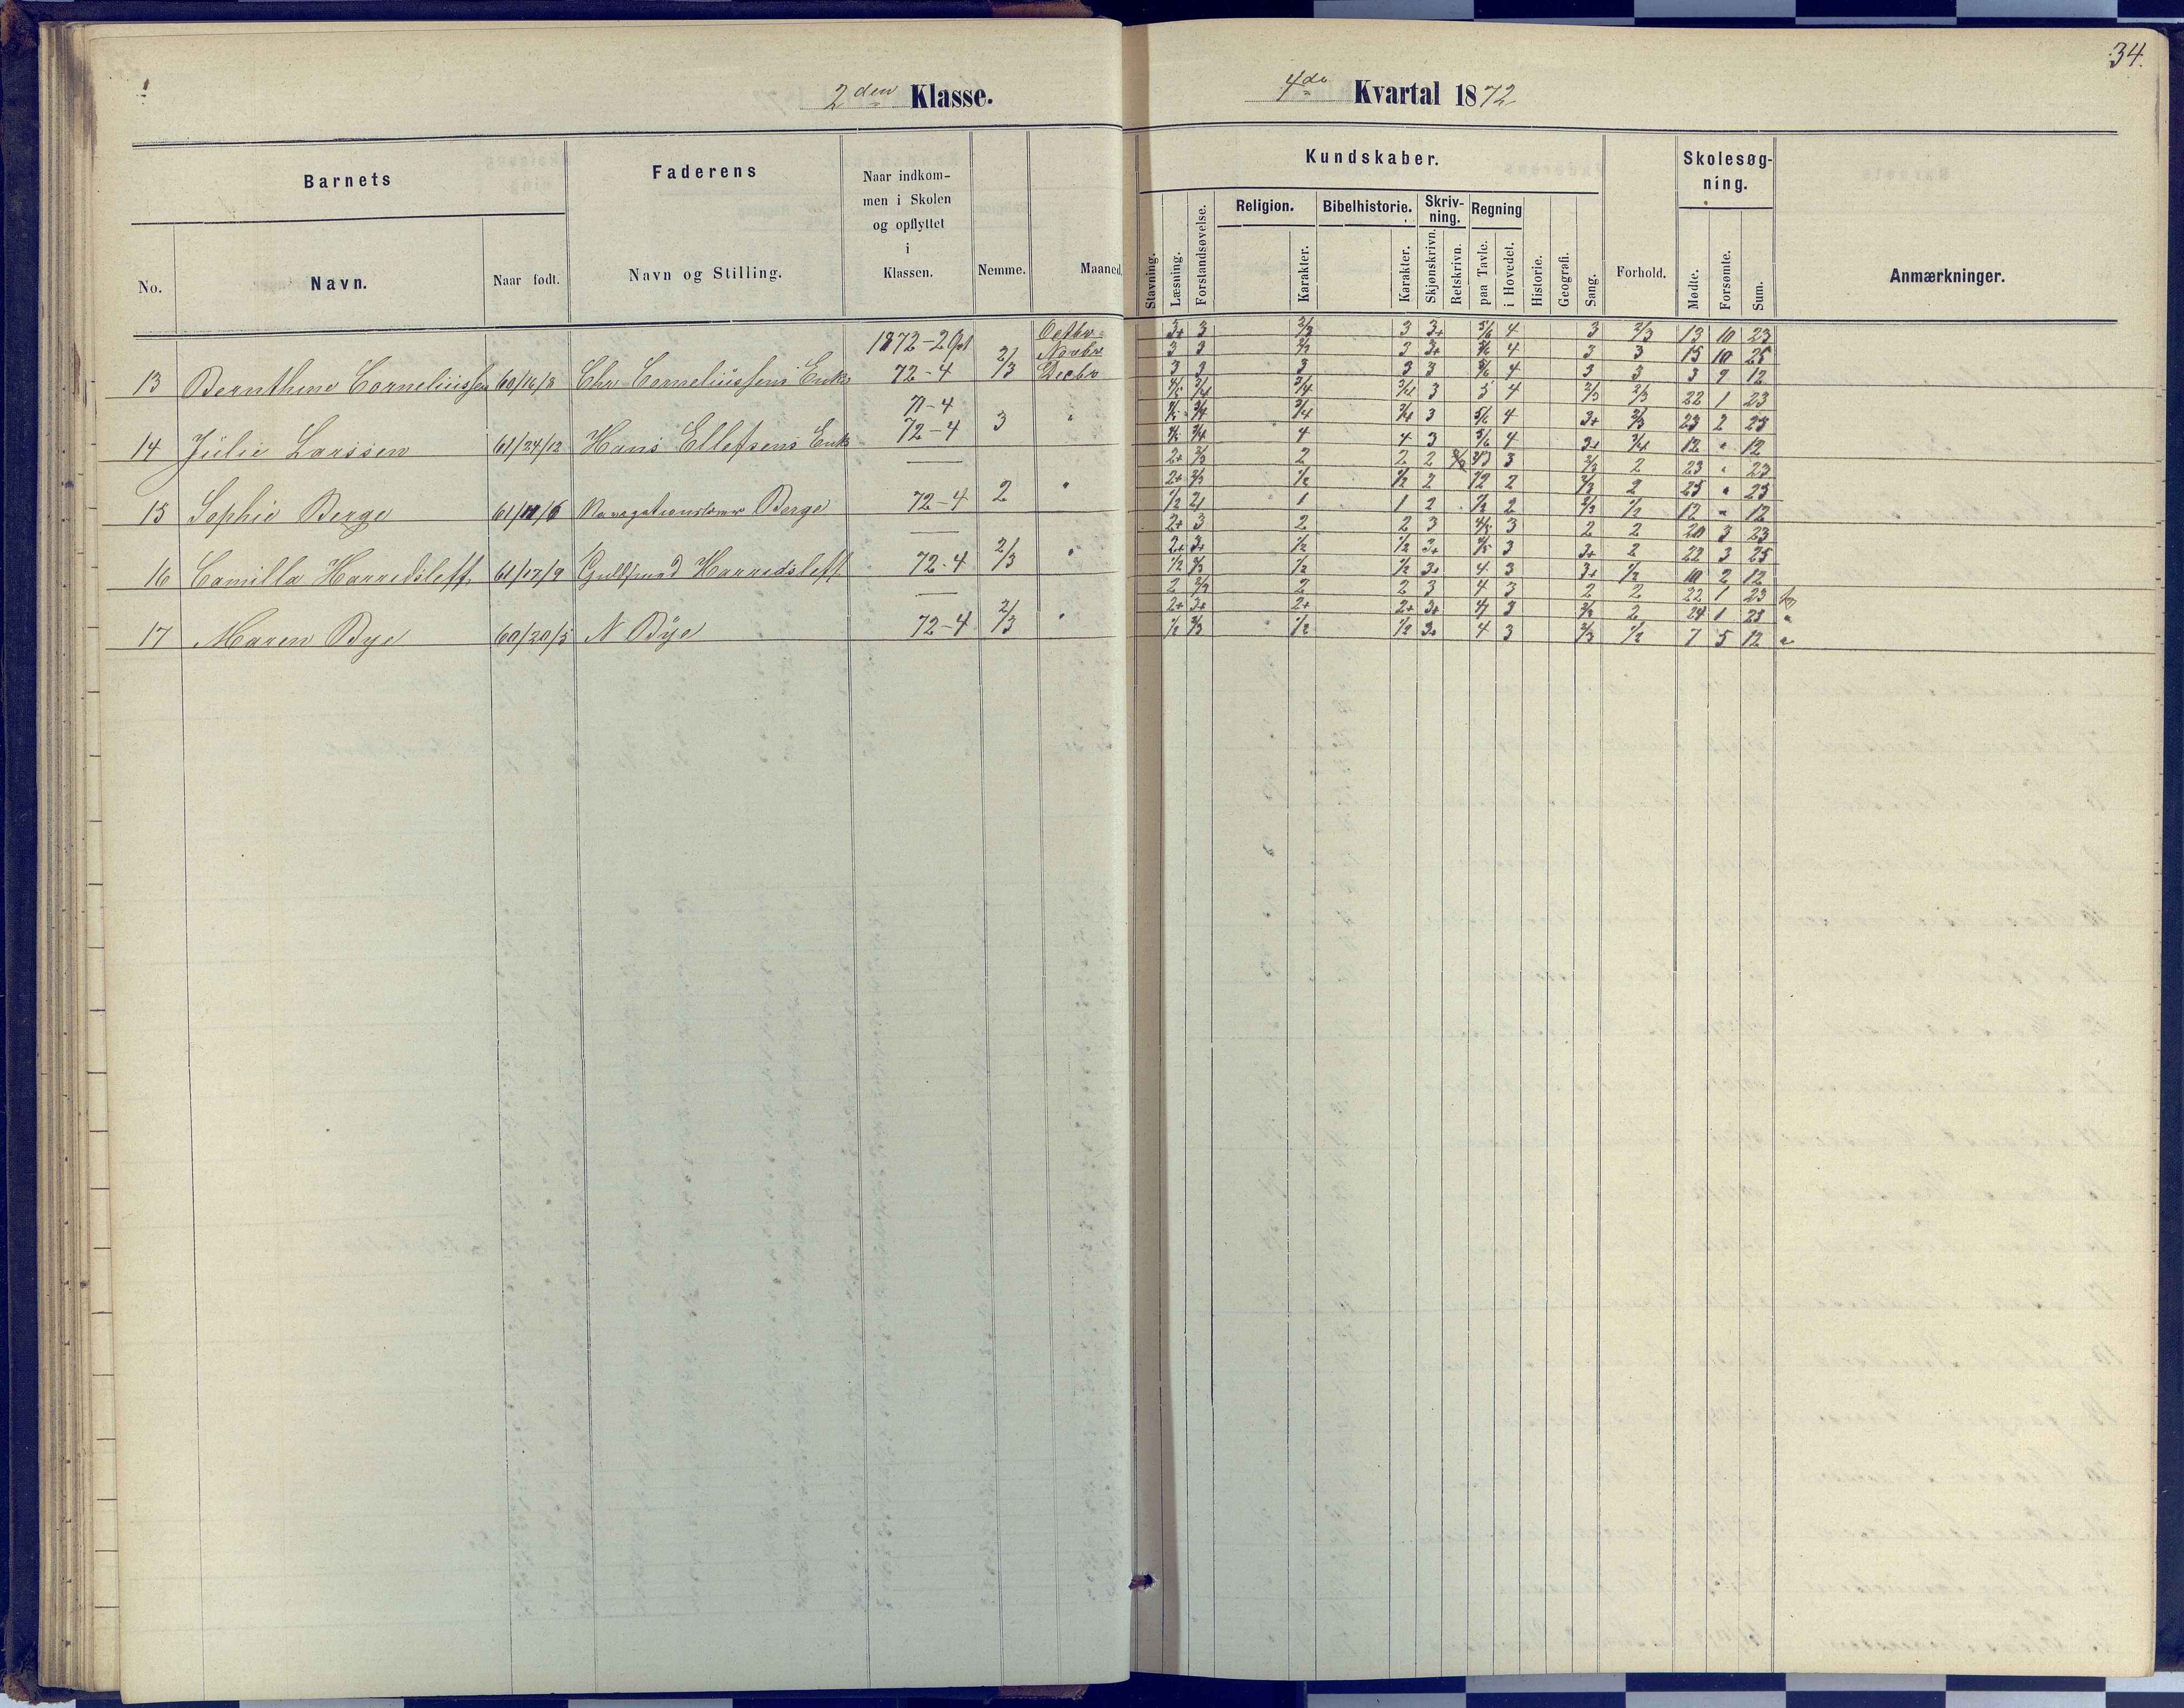 34.
2den Klasse.
4de Kvartal 1872
Barnets
Faderens
Naar indkom-
men i Skolen
og opflyttet
i
Klassen.
Nemme.
Maaned.
No.
Navn.
Naar født.
Navn og Stilling.
Kundskaber.
Skolesøg-
ning.
Religion.
Bibelhistorie.
Skriv-
ning.
Regning
Stavning.
Læsning.
Forstandsøvelse.
Karakter.
Karakter.
Skjønskrivn.
Retskrivn.
paa Tavle.
i Hovedet.
Historie.
Geografi.
Sang.
Forhold.
Mødte.
Forsømte.
Sum.
Anmærkninger.
1872-2 Octbr 3+ 3 2/3 3 3+ 5/6 4 3 2/3 13 10 23
Novbr 3 3 2/3 3 3+ 5/6 4 3 3 15 10 25
13 Bernthine Corneliussen 60/16/8 Chr Corneliussens Enke 72-4 2/3 Decbr 3 3 3 3 3 5/6 4 3 3 3 9 12
71-4 4/5 3/4 3/4 3/4 3 5 4 2/3 2/3 22 1 23
72-4 3 " 4/5 3/4 3/4 3/4 3 5/6 4 3+ 2/3 23 2 25
14 Julie Larssen 61/24/12 Hans Ellefsens Enke 4/5 3/4 4 4 3 5/6 4 3+ 3/4 12 " 12
2+ 2/3 2 2 2 2/3 2/3 3 2/3 2 23 " 23
2+ 2/3 1/2 1/2 2 1/2 2 2/3 2 25 " 25
15 Sophie Berge 61/11/6 Berge 72-4 2 " 1/2 2 1 1 2 1/2 2 2/3 1/2 12 " 12
2+ 3 2 2 3 4/5 3 2 2 20 3 23
2+ 3+ 1/2 1/2 3+ 4/5 3 3+ 2 22 3 25
16 Camilla Harredsleff 61/17/9 Harredsleff 72-4 2/3 " 1/2 2/3 1/2 1/2 3+ 4 3 3+ 1/2 10 2 12
2 2/3 2 2 3 4 3 2 2 22 1 23
2+ 3+ 2+ 2+ 3+ 4 3 2/3 2 24 1 25 "
17 Maren Bye 60/20/5 N Bye 72-4 2/3 " 1/2 2/3 1/2 1/2 3+ 4 3 2/3 1/2 7 5 12 "